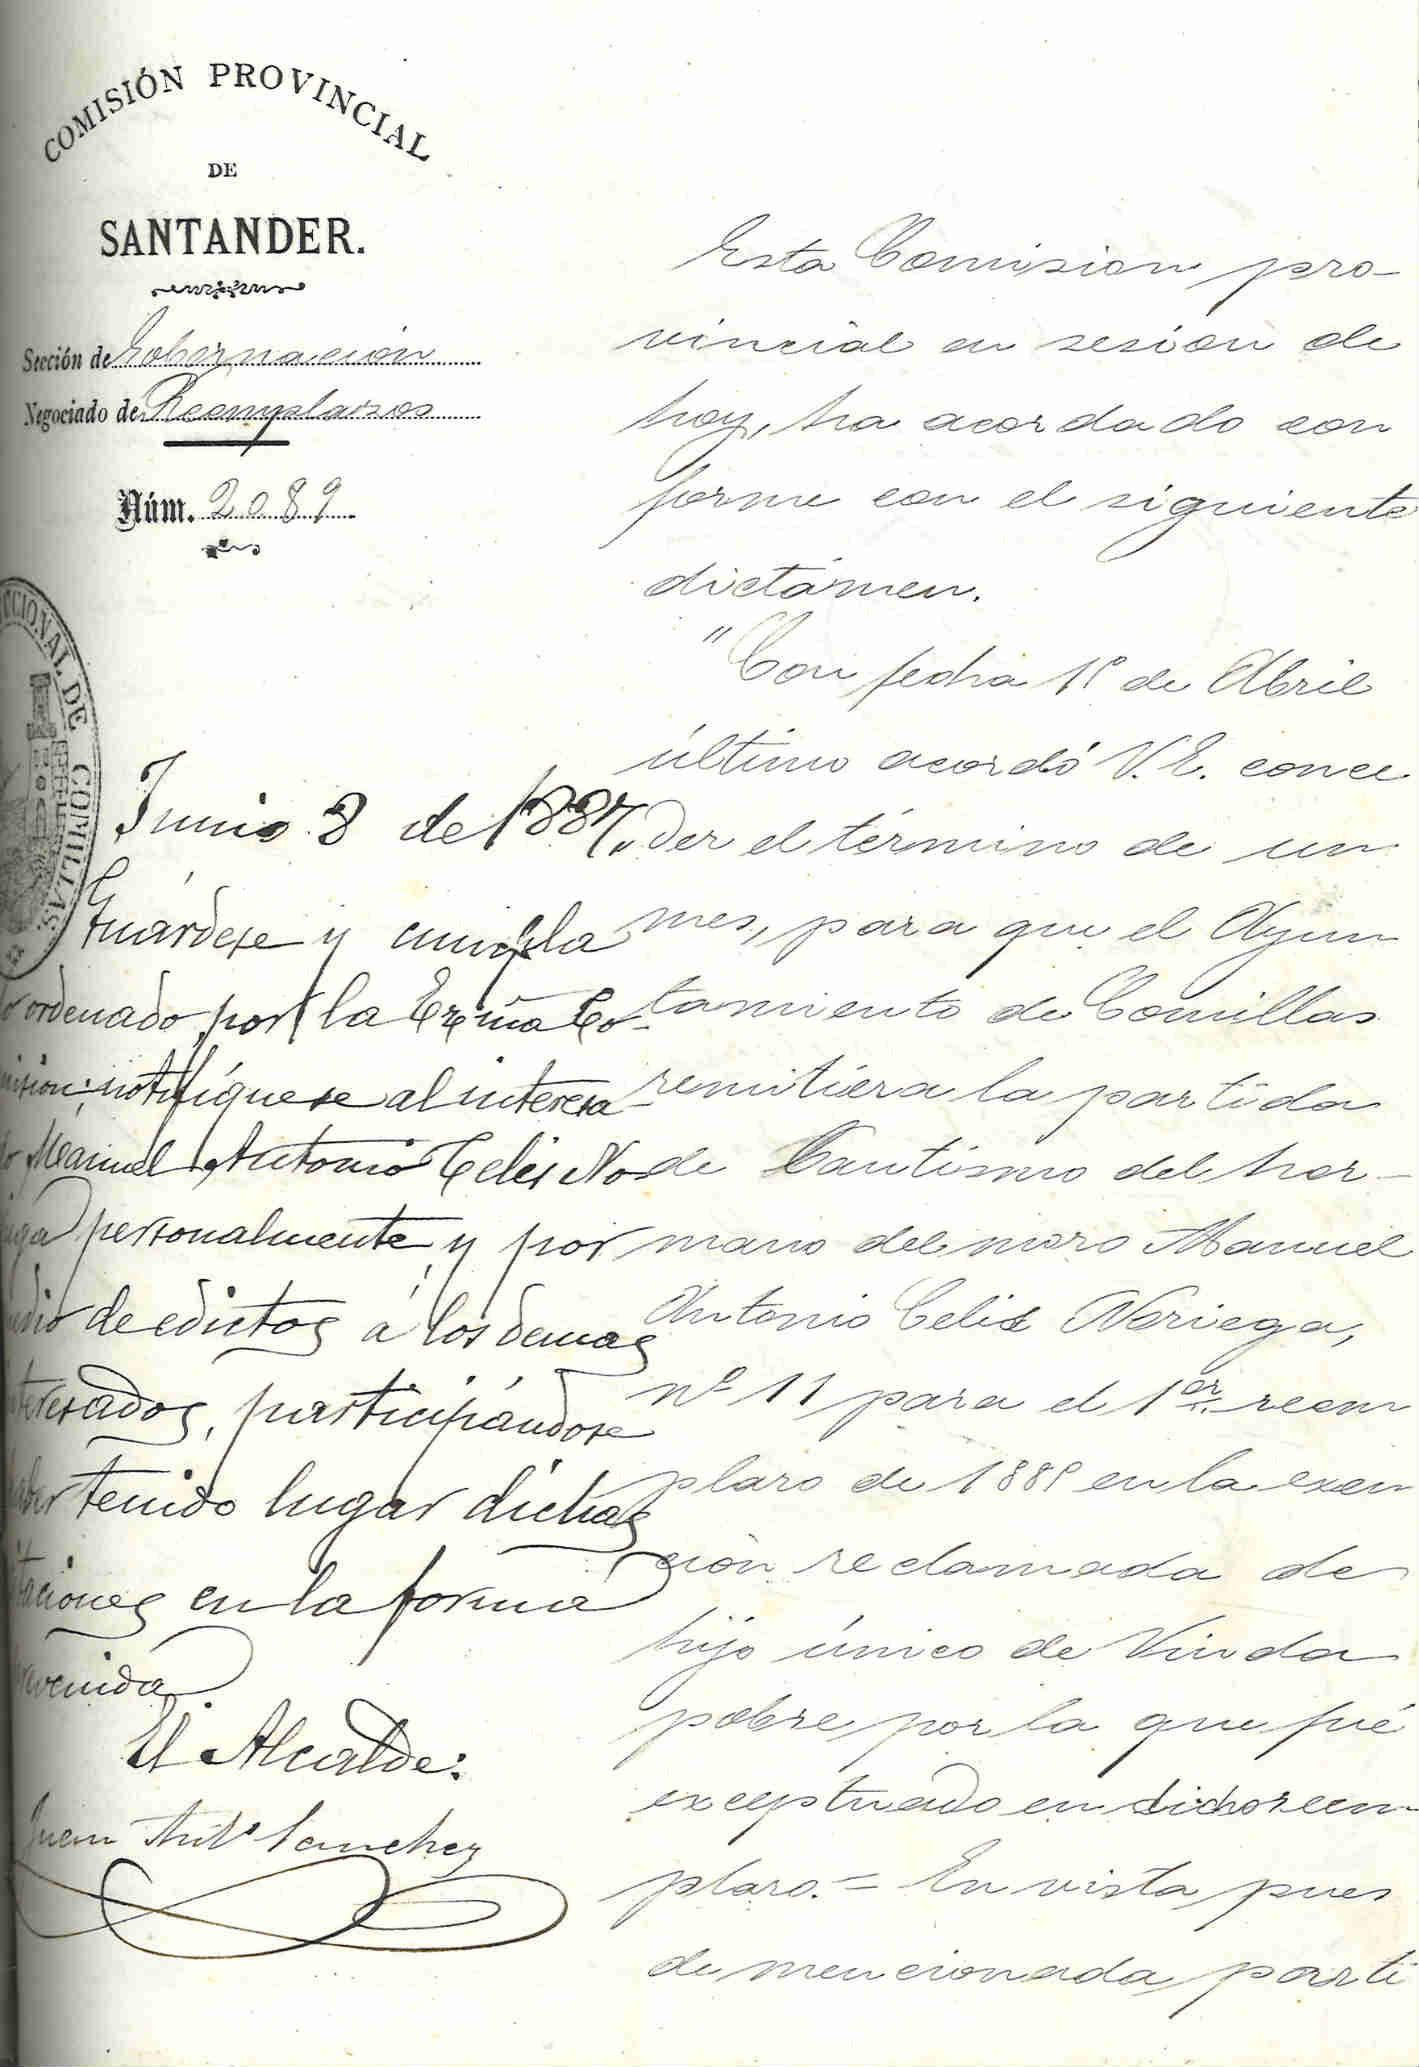 COMISIÓN PROVINCIAL
DE
SANTANDER.
Sección de Gobernación
Negociado de Reemplazos
Núm. 2089
CCIONAL DE COMILLAS
Junio 8 de 1887.
Guárdese y cumpla
lo ordenado por la Exma Co-
misión; notifíquese al interesa-
do Manuel Antonio Celis No-
riega personalmente y por
medio de edictos á los demas
interesados, participándose
haber tenido lugar dichas
citaciones en la forma
prevenida
El Alcalde:
Juan Antº Sanchez
Esta Comision pro-
vincial en sesion de
hoy, ha acordado con
forme con el siguiente
dictámen.
"Con fecha 1º de Abril
último acordó V.E. conce
der el término de un
mes, para que el Ayun
tamiento de Comillas
remitiera la partida
de Bautismo del her-
mano del mozo Manuel
Antonio Celis Noriega,
nº 11 para el 1er reem
plazo de 1885 en la exen
ción reclamada de
hijo único de Viuda
pobre por la que fué
exceptuado en dicho reem-
plazo. = En vista pues
de mencionada parti